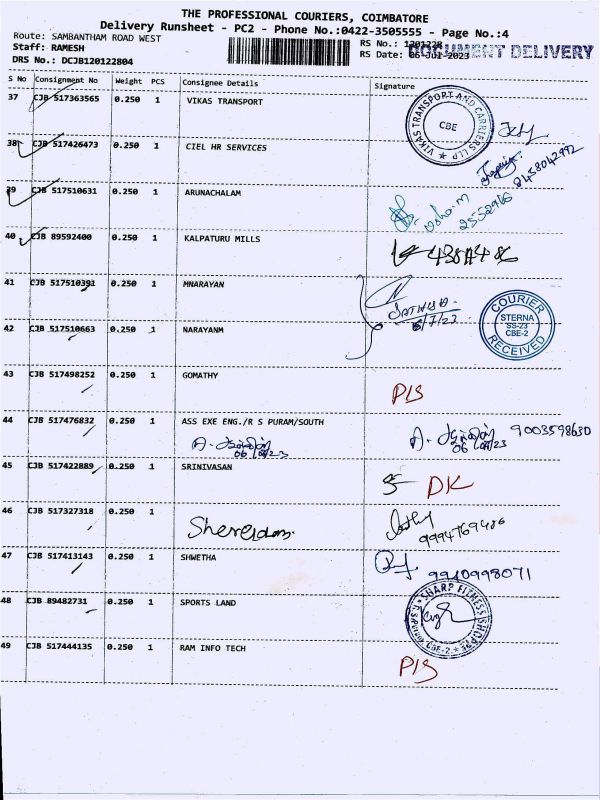 THE PROFESSIONAL COURIERS, COIMBATORE
Delivery Runsheet - PC2 - Phone No.:0422-3505555 - Page No.:4
Route: SAMBANTHAM ROAD WEST
RS No.: 1201228
DOCUMENT DELIVERY
Staff: RAMESH
RS Date: 06-Jul-2023
DRS No.: DCJB120122804
S No Consignment No Weight PCS Consignee Details Signature
37 CJB 517363565 0.250 1 VIKAS TRANSPORT
VIKAS TRANSPORT AND CARRIERS LLP
CBE
38 CJB 517426473 0.250 1 CIEL HR SERVICES
39 CJB 517510631 0.250 1 ARUNACHALAM
2552966
40 CJB 89592400 0.250 1 KALPATURU MILLS
41 CJB 517510391 0.250 1 MNARAYAN
6/7/23
COURIER
STERNA
SS-23
CBE-2
RECEIVED
42 CJB 517510663 0.250 1 NARAYANM
43 CJB 517498252 0.250 1 GOMATHY
44 CJB 517476832 0.250 1 ASS EXE ENG./R S PURAM/SOUTH
9003598630
45 CJB 517422889 0.250 1 SRINIVASAN
DK
46 CJB 517327318 0.250 1
9994769486
47 CJB 517413143 0.250 1 SHWETHA
9940998071
48 CJB 89482731 0.250 1 SPORTS LAND
SHARP FITNESS SHOP
49 CJB 517444135 0.250 1 RAM INFO TECH